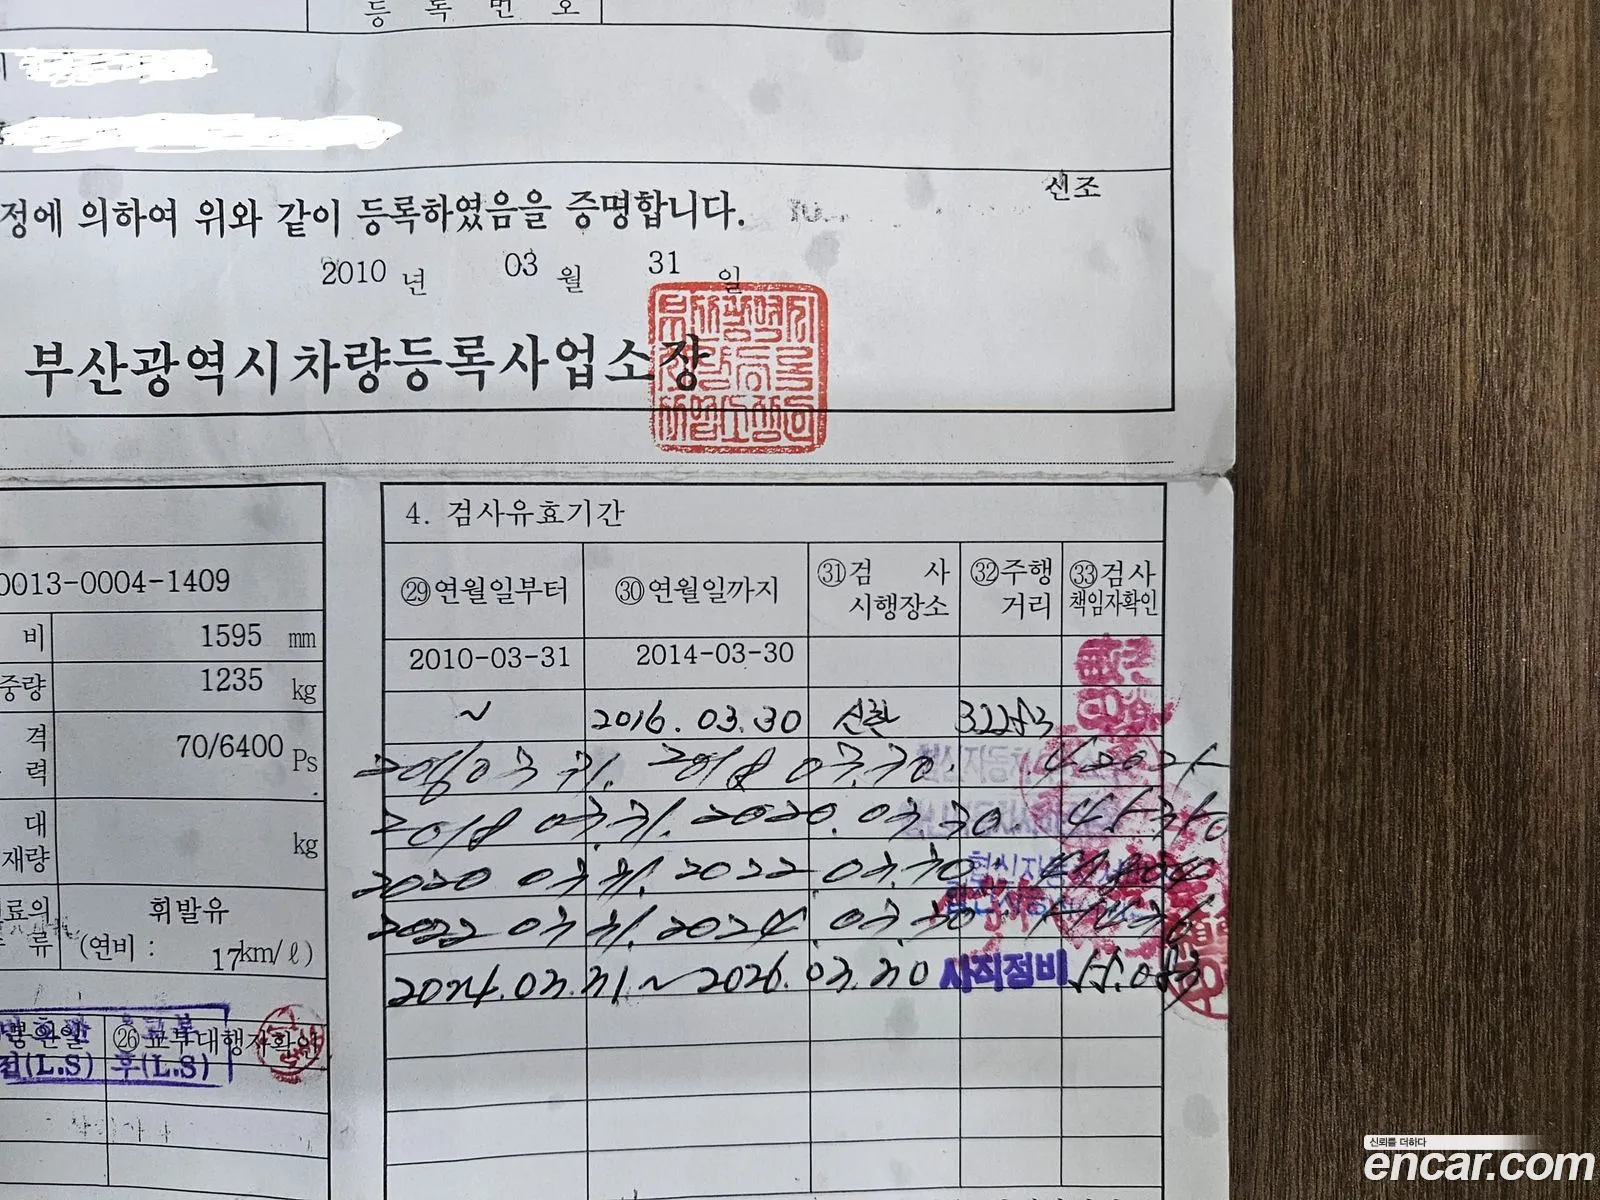 등 록 번 호
정에 의하여 위와 같이 등록하였음을 증명합니다.
신조
2010 년 03 월 31 일
부산광역시차량등록사업소장
4. 검사유효기간
0013-0004-1409
㉙연월일부터 ㉚연월일까지 ㉛검 사 시행장소 ㉜주행 거리 ㉝검사 책임자확인
비 1595 mm
2010-03-31 2014-03-30
중량 1235 kg
~ 2016.03.30
격 력 70/6400 Ps
2018 03.30.
2018 03.31. 2020.03.30.
대 재량 kg
2020 03.31. 2022 03.30
료의 류 휘발유
(연비 : 17km/ℓ)
2022 03.31. 2024.03.30
2024.03.31 ~ 2026.03.30 사직정비
㉖교부대행자확인
전(L.S) 후(L.S)
신뢰를 더하다
encar.com